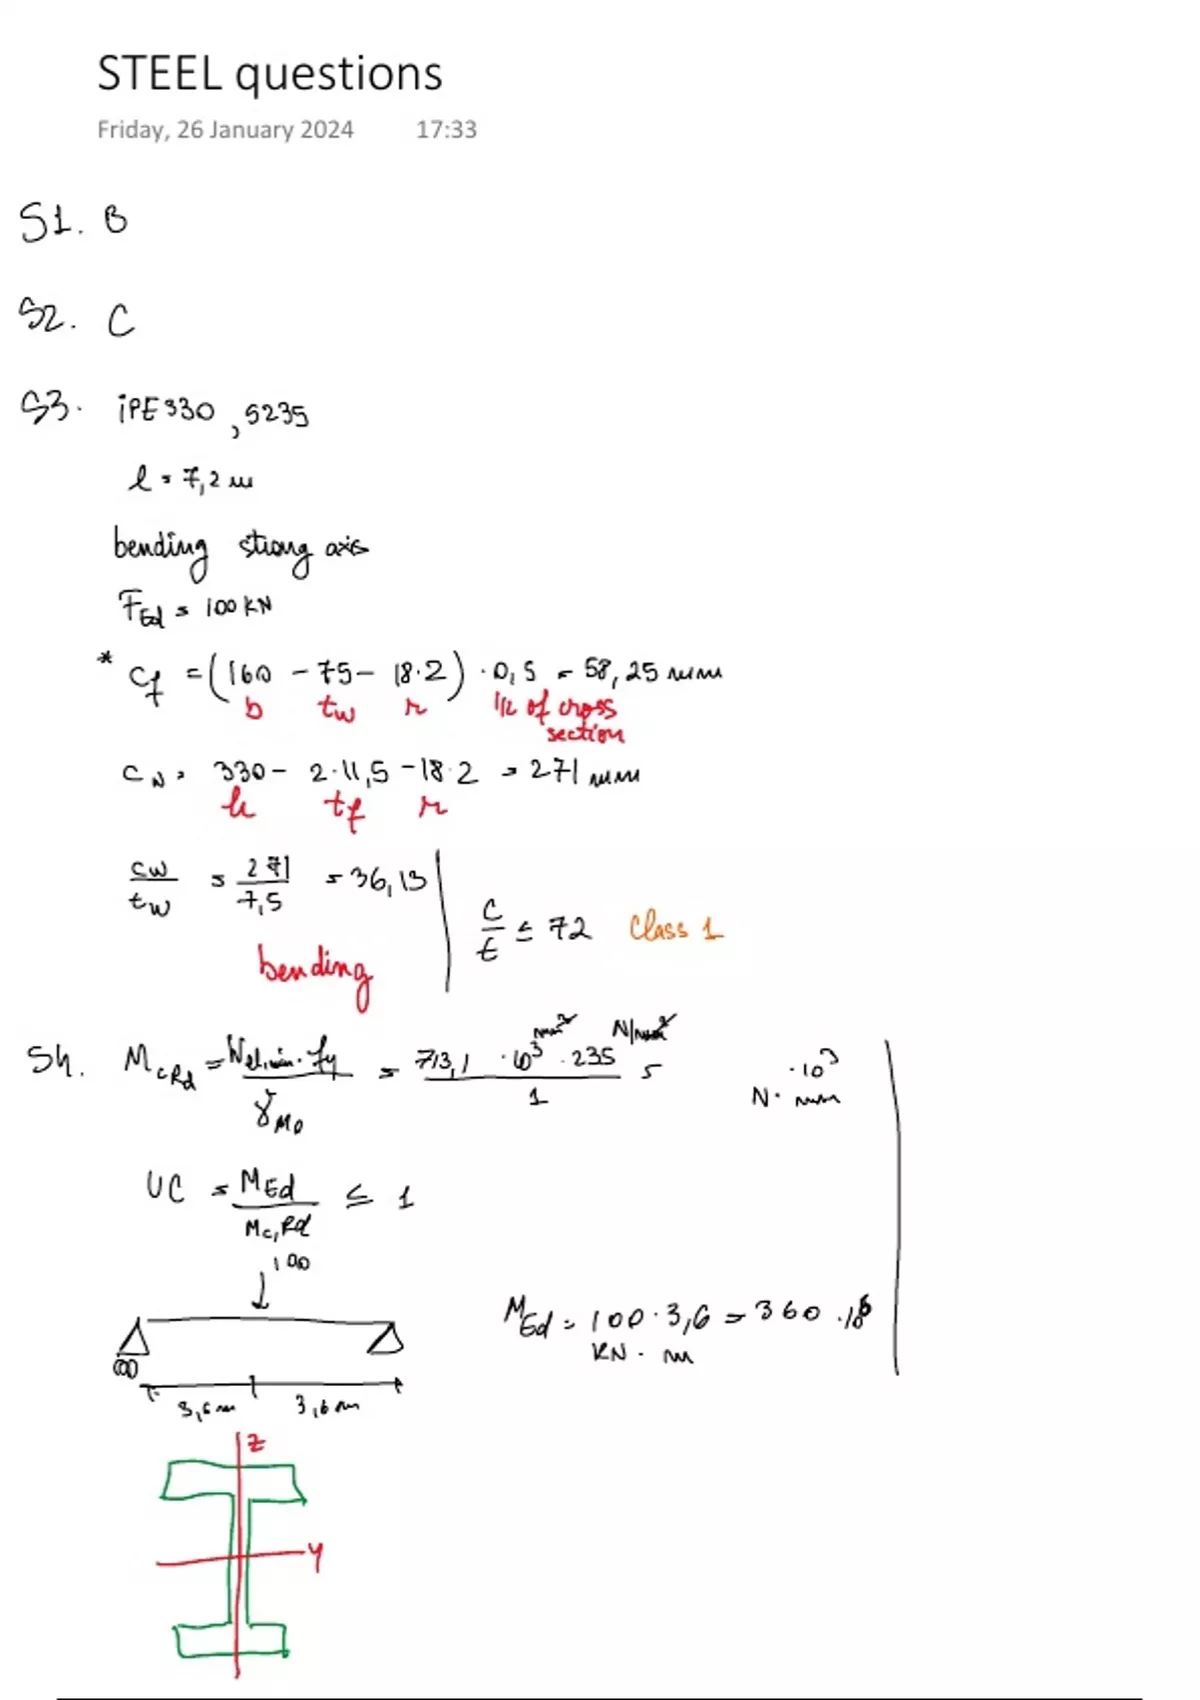 STEEL questions
Friday, 26 January 2024 17:33
S1. B
S2. C
S3. iPE330, S235
l = 7,2 m
bending strong axis
F_Ed = 100 kN
* cf = (160 - 75 - 18·2) · 0,5 = 58,25 mm
b tw r 1/2 of cross
section
cw = 330 - 2·11,5 - 18·2 = 271 mm
h tf r
cw/tw = 271/7,5 = 36,13
c/t ≤ 72 Class 1
bending
S4. M_c,Rd = W_el,min · fy / γ_M0 = 713,1 · 10³ mm³ · 235 N/mm² / 1 = · 10³
N · mm
UC = M_Ed / M_c,Rd ≤ 1
100
M_Ed = 100 · 3,6 = 360 · 10⁶
kN · m
3,6 m 3,6 m
z
y